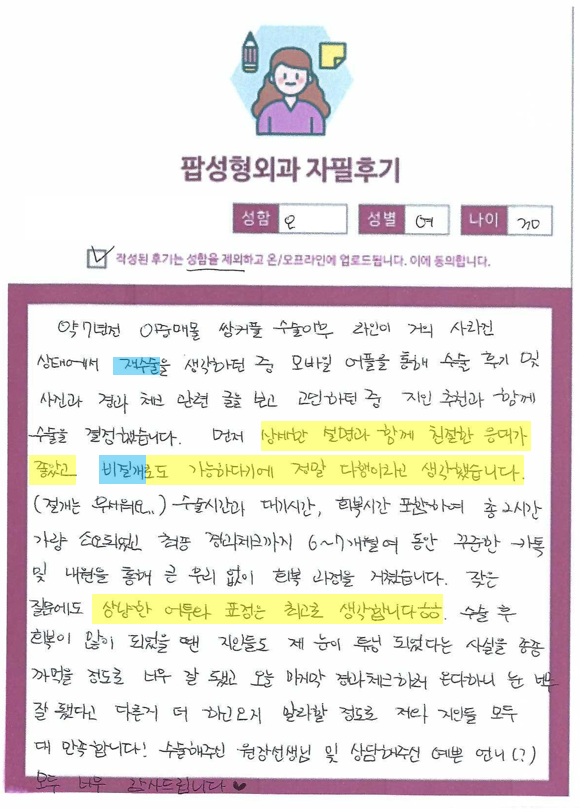 팝성형외과 자필후기
성함 오 성별 여 나이 30
작성된 후기는 성함을 제외하고 온/오프라인에 업로드됩니다. 이에 동의합니다.
약 7년전 매몰 쌍커풀 수술이후 라인이 거의 사라진
상태에서 재수술을 생각하던 중 모바일 어플을 통해 수술 후기 및
사진과 경과 체크 관련 글을 보고 고민하던 중 지인 추천과 함께
수술을 결정했습니다. 먼저 상세한 설명과 함께 친절한 응대가
좋았고 비절개로도 가능하다기에 정말 다행이라고 생각했습니다.
(절개는 무서워요..) 수술시간과 대기시간, 회복시간 포함하여 총 2시간
가량 소요되었고 최종 경과체크까지 6~7개월여 동안 꾸준한 카톡
및 내원을 통해 큰 무리 없이 회복 과정을 거쳤습니다. 잦은
질문에도 상냥한 어투와 표정은 최고로 생각합니다ㅎㅎ. 수술 후
회복이 많이 되었을 땐 지인들도 제 눈이 튜닝 되었다는 사실을 종종
까먹을 정도로 너무 잘 됐고 오늘 마지막 경과체크하러 온다하니 눈 너무
잘 됐다고 다른거 더 하진 말라할 정도로 저와 지인들 모두
대 만족합니다! 수술해주신 원장선생님 및 상담해주신 예쁜 언니(?)
모두 너무 감사드립니다 ♥